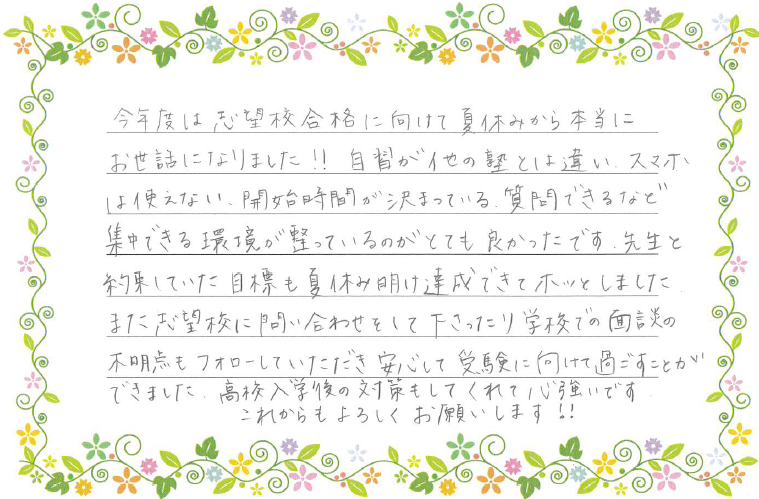 今年度は志望校合格に向けて夏休みから本当に
お世話になりました!! 自習が他の塾とは違い、スマホ
は使えない、開始時間が決まっている、質問できるなど
集中できる環境が整っているのがとても良かったです。先生と
約束していた目標も夏休み明け達成できてホッとしました。
また志望校に問い合わせをして下さったり学校での面談の
不明点もフォローしていただき安心して受験に向けて過ごすことが
できました。高校入学後の対策もしてくれて心強いです。
これからもよろしくお願いします!!